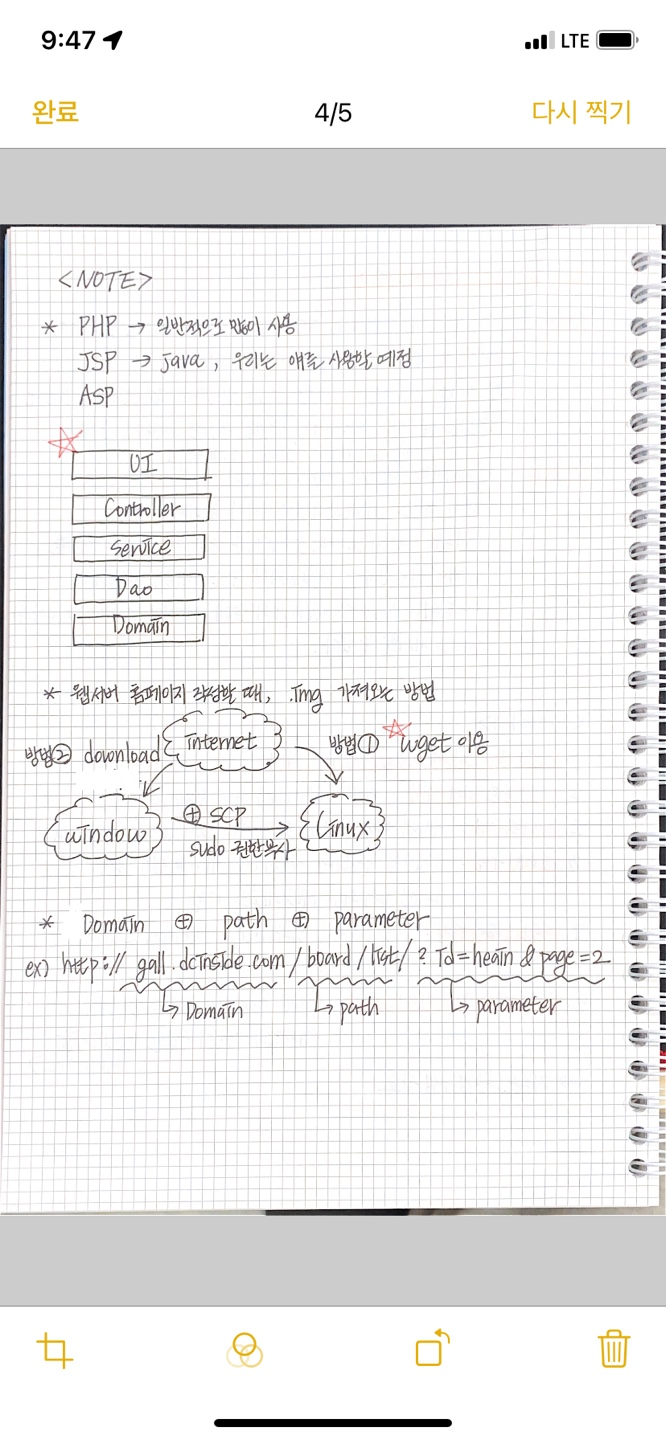 9:47 LTE
완료 4/5 다시 찍기
<NOTE>
* PHP → 일반적으로 많이 사용
JSP → java, 우리는 얘를 사용할 예정
ASP
UI
Controller
Service
Dao
Domain
* 웹서버 홈페이지 작성할 때, .img 가져오는 방법
방법② download internet 방법① wget 이용
window ⊕ SCP Linux
sudo 권한복사
* Domain ⊕ path ⊕ parameter
ex) http:// gall.dcinside.com / board / list / ? id=heain & page=2
↳ Domain ↳ path ↳ parameter